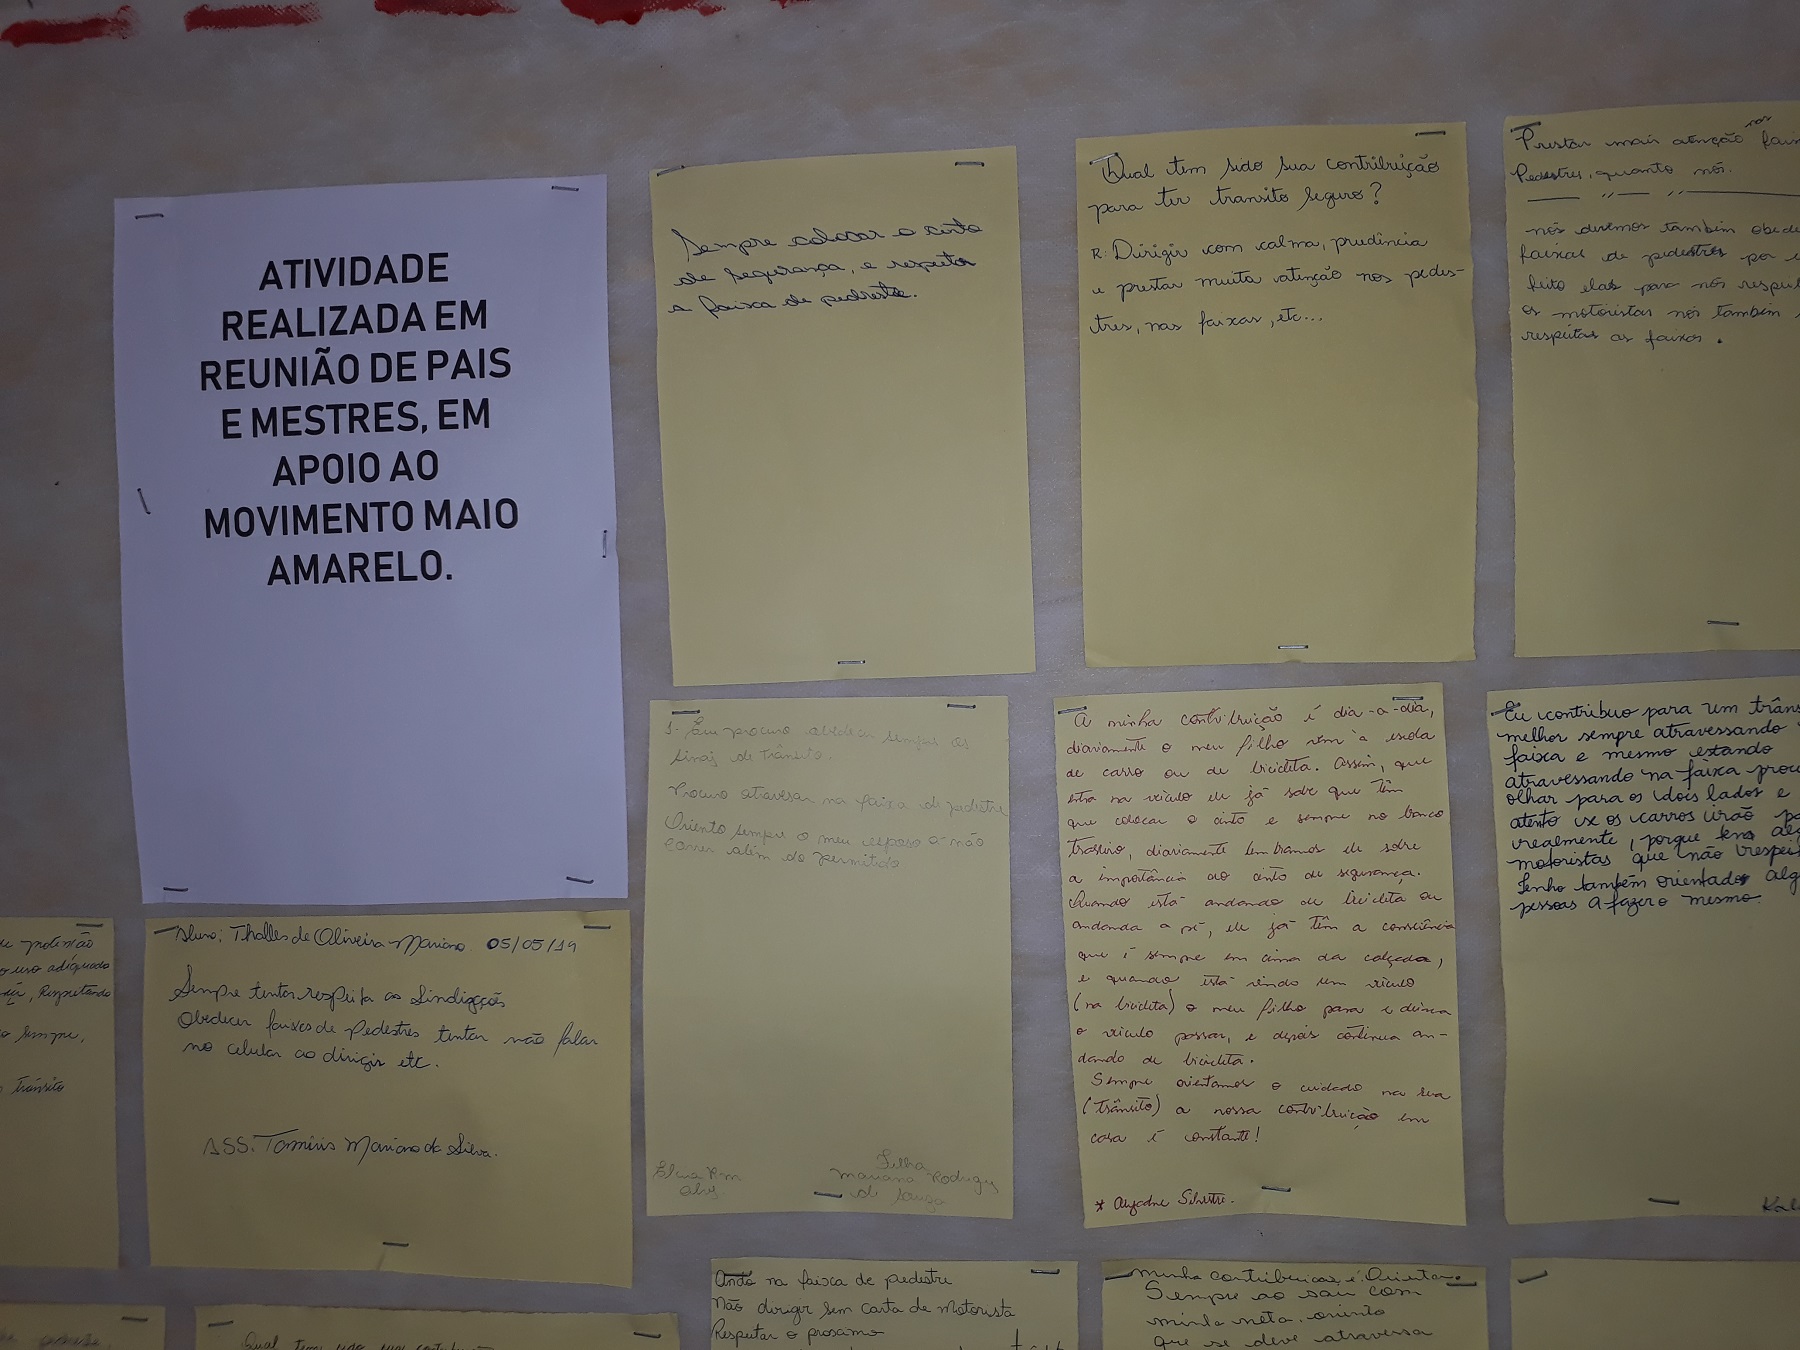 ATIVIDADE
REALIZADA EM
REUNIÃO DE PAIS
E MESTRES, EM
APOIO AO
MOVIMENTO MAIO
AMARELO.
Sempre colocar o cinto
de segurança, e respeitar
a faixa de pedreste.
Qual tem sido sua contribuição
para ter transito seguro?
R: Dirigir com calma, prudência
e prestar muita atenção nos pedes-
tres, nas faixas, etc...
Prestar mais atenção nas
Pedestres, quanto nós.
nós devemos também
faixas de pedestres por
feito elas para nós
os motoristas nós também
respeitas as faixas.
1- Eu procuro obedecer sempre os
sinais de Trânsito.
Procuro atravesar na faixa de pedestre
Oriento sempre o meu esposo a não
correr além do permitido
Filha
Mariana Rodrigues
de Souza
A minha contribuição é dia-a-dia,
diariamente o meu filho vêm à escola
de carro ou de bicicleta. Assim, que
entra no veículo ele já sabe que têm
que colocar o cinto e sempre no banco
traseiro, diariamente lembramos ele sobre
a importância ao cinto de segurança.
Quando está andando de bicicleta ou
andando a pé, ele já têm a consciência
que é sempre em cima da calçada,
e quando está vindo um veículo
(na bicicleta) o meu filho para e deixa
o veículo passar, e depois continua an-
dando de bicicleta.
Sempre orientamos o cuidado na rua
(trânsito) a nossa contribuição em
casa é constante!
Eu contribuo para um
melhor sempre atravessando
faixa e mesmo estando
atravessando na faixa
olhar para os dois lados e
atento se os carros irão
realmente, porque tem
motoristas que não
Tenho também orientado
pessoas a fazer o mesmo.
Aluno: Thalles de Oliveira Mariano. 05/05/19
Sempre tentar respeita as Sindigações
Obedecer faixas de pedestres tentar não falar
no celular ao dirigir etc.
ASS: Tamiris Mariano da Silva.
o uso adequado
Respeitando
sempre,
trânsito
Andá na faixa de pedestre
Não dirigir sem carta de motorista
Respeitar o prosimo
Minha contribuicao é: Orientar.
Sempre ao sair com
minha neta, oriento
que se deve atravessa